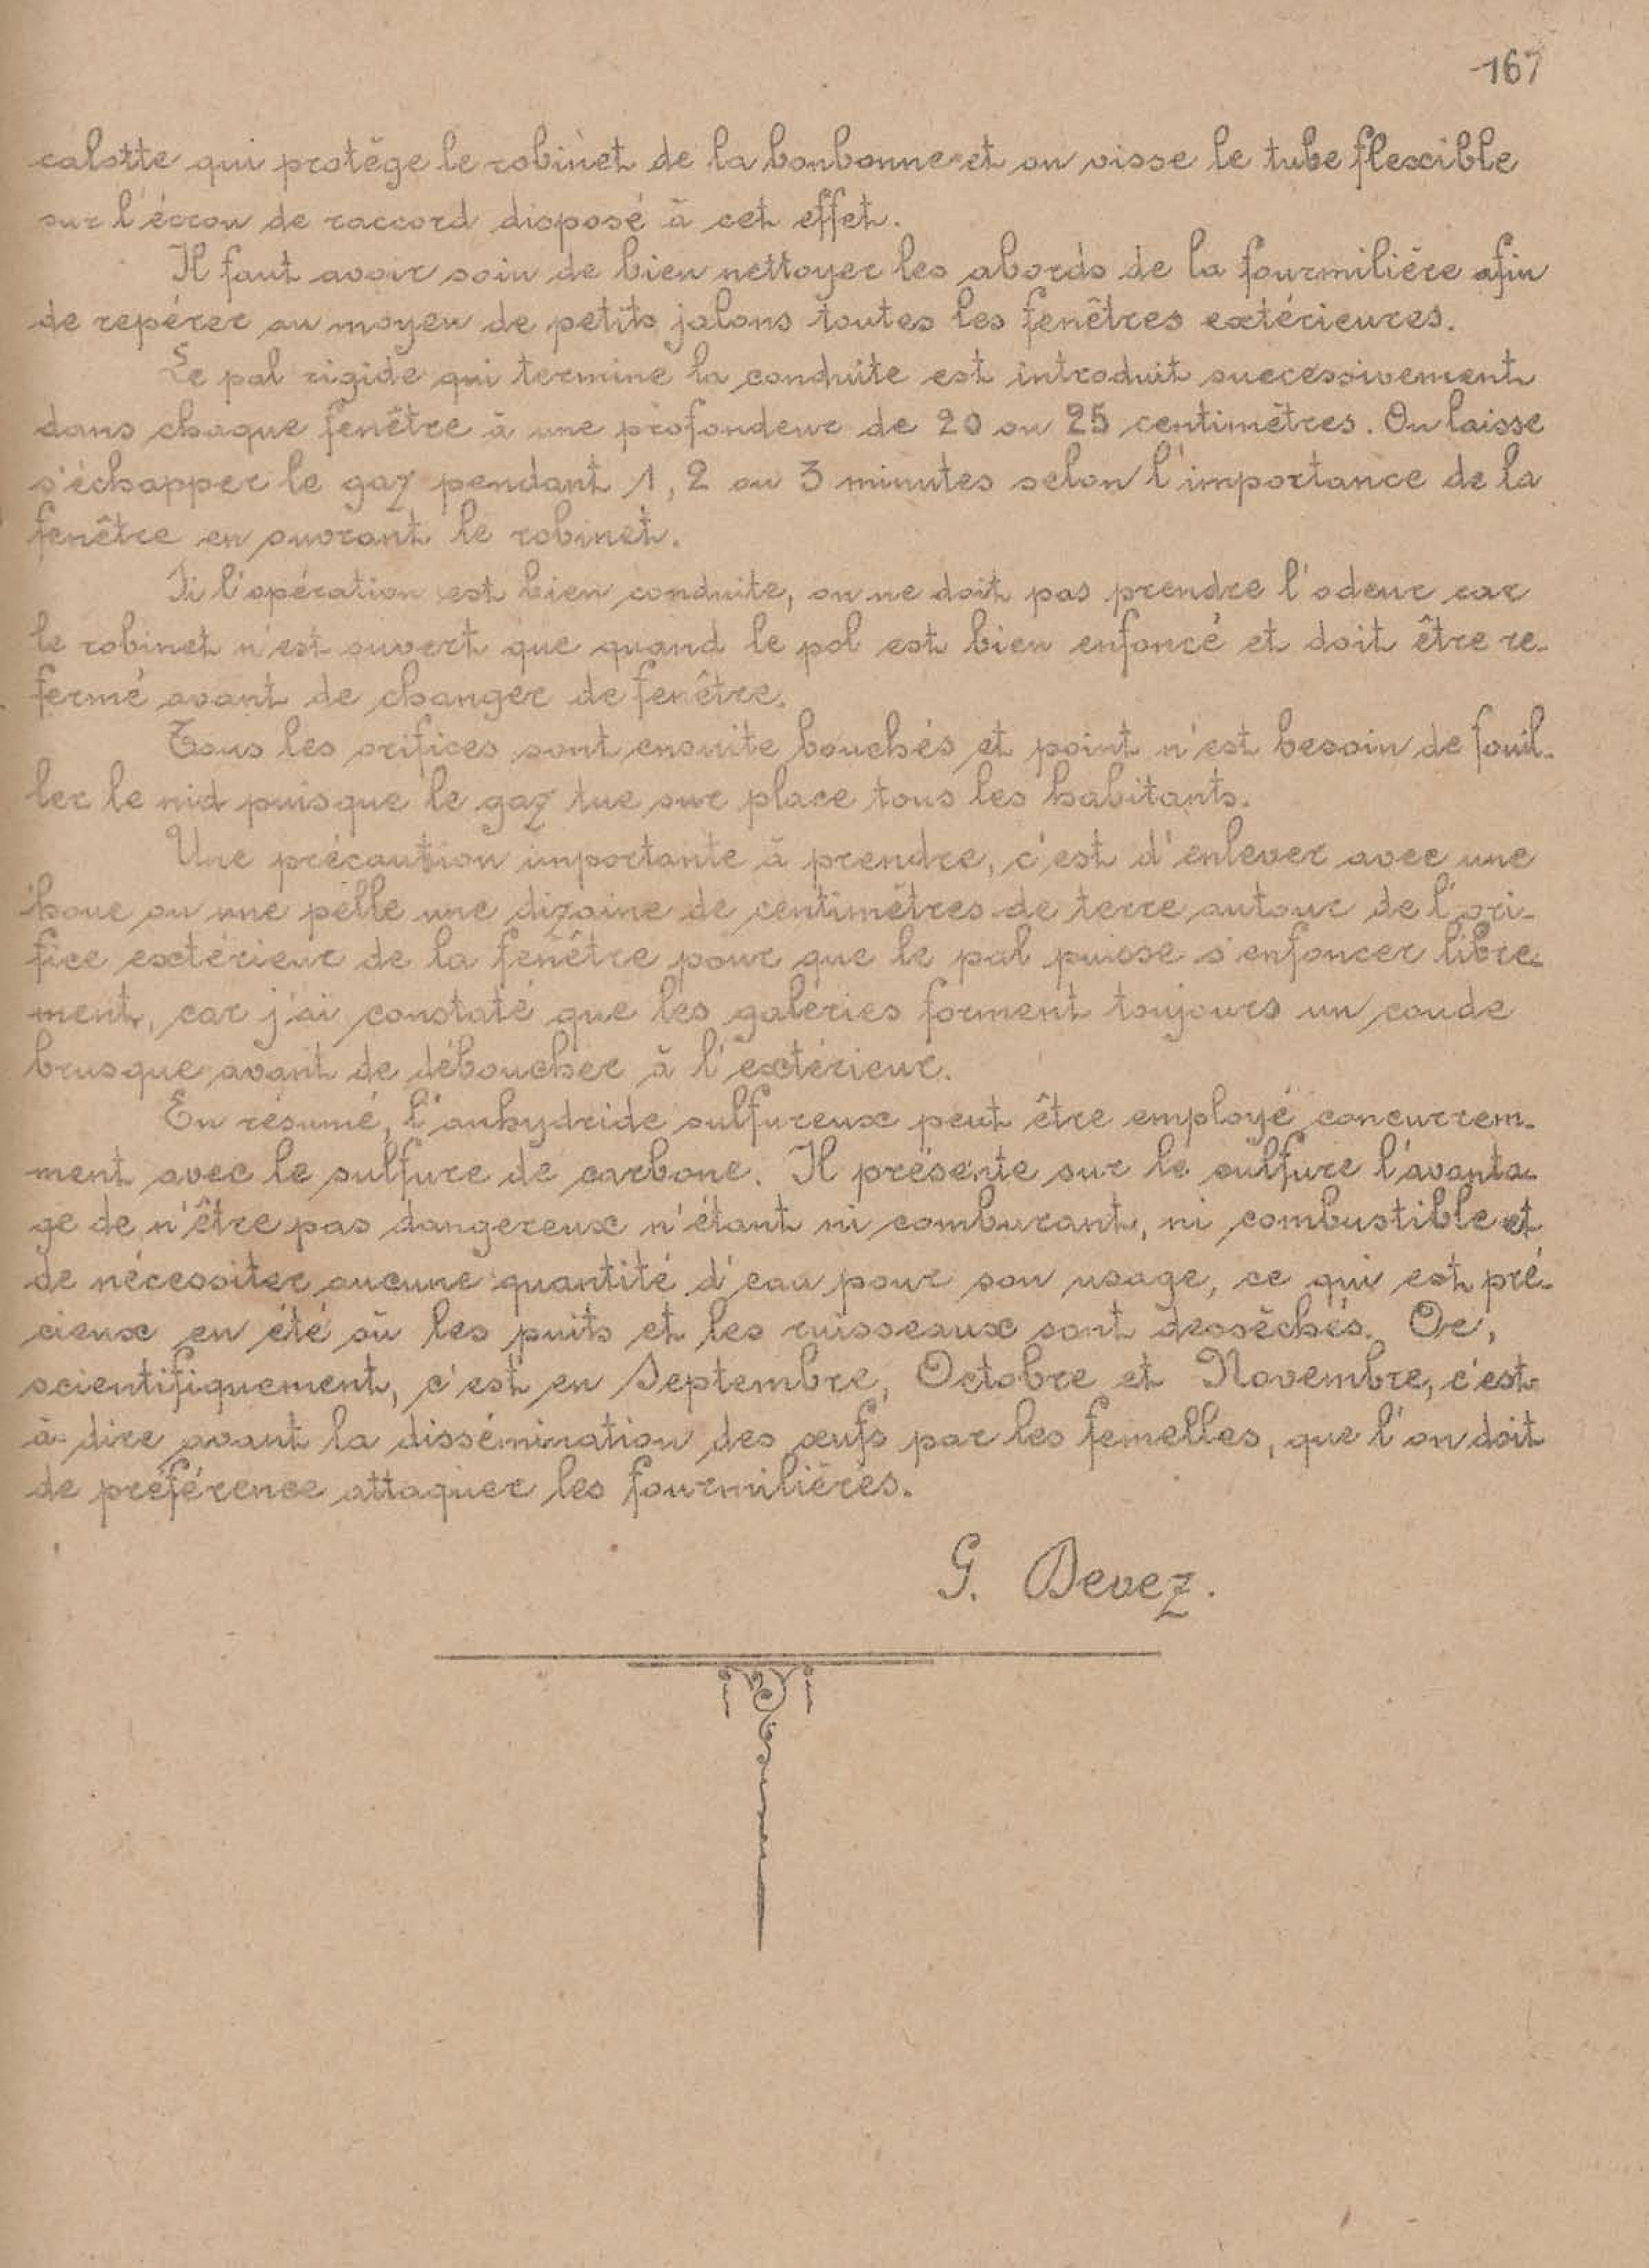 167
calotte qui protège le robinet de la bonbonne et on visse le tube flexible
sur l'écrou de raccord disposé à cet effet.
Il faut avoir soin de bien nettoyer les abords de la fourmilière afin
de repérer au moyen de petits jalons toutes les fenêtres extérieures.
Le pal rigide qui termine la conduite est introduit successivement
dans chaque fenêtre à une profondeur de 20 ou 25 centimètres. On laisse
s'échapper le gaz pendant 1, 2 ou 3 minutes selon l'importance de la
fenêtre en ouvrant le robinet.
Si l'opération est bien conduite, on ne doit pas prendre l'odeur car
le robinet n'est ouvert que quand le pal est bien enfoncé et doit être re-
fermé avant de changer de fenêtre.
Tous les orifices sont ensuite bouchés et point n'est besoin de fouil-
ler le nid puisque le gaz tue sur place tous les habitants.
Une précaution importante à prendre, c'est d'enlever avec une
houe ou une pelle une dizaine de centimètres de terre autour de l'ori-
fice extérieur de la fenêtre pour que le pal puisse s'enfoncer libre-
ment, car j'ai constaté que les galeries forment toujours un coude
brusque avant de déboucher à l'extérieur.
En résumé, l'anhydride sulfureux peut être employé concurrem-
ment avec le sulfure de carbone. Il présente sur le sulfure l'avanta-
ge de n'être pas dangereux n'étant ni comburant, ni combustible et
de nécessiter aucune quantité d'eau pour son usage, ce qui est pré-
cieux en été où les puits et les ruisseaux sont desséchés. Or,
scientifiquement, c'est en Septembre, Octobre et Novembre, c'est-
à-dire avant la dissémination des œufs par les femelles, que l'on doit
de préférence attaquer les fourmilières.
G. Devez.